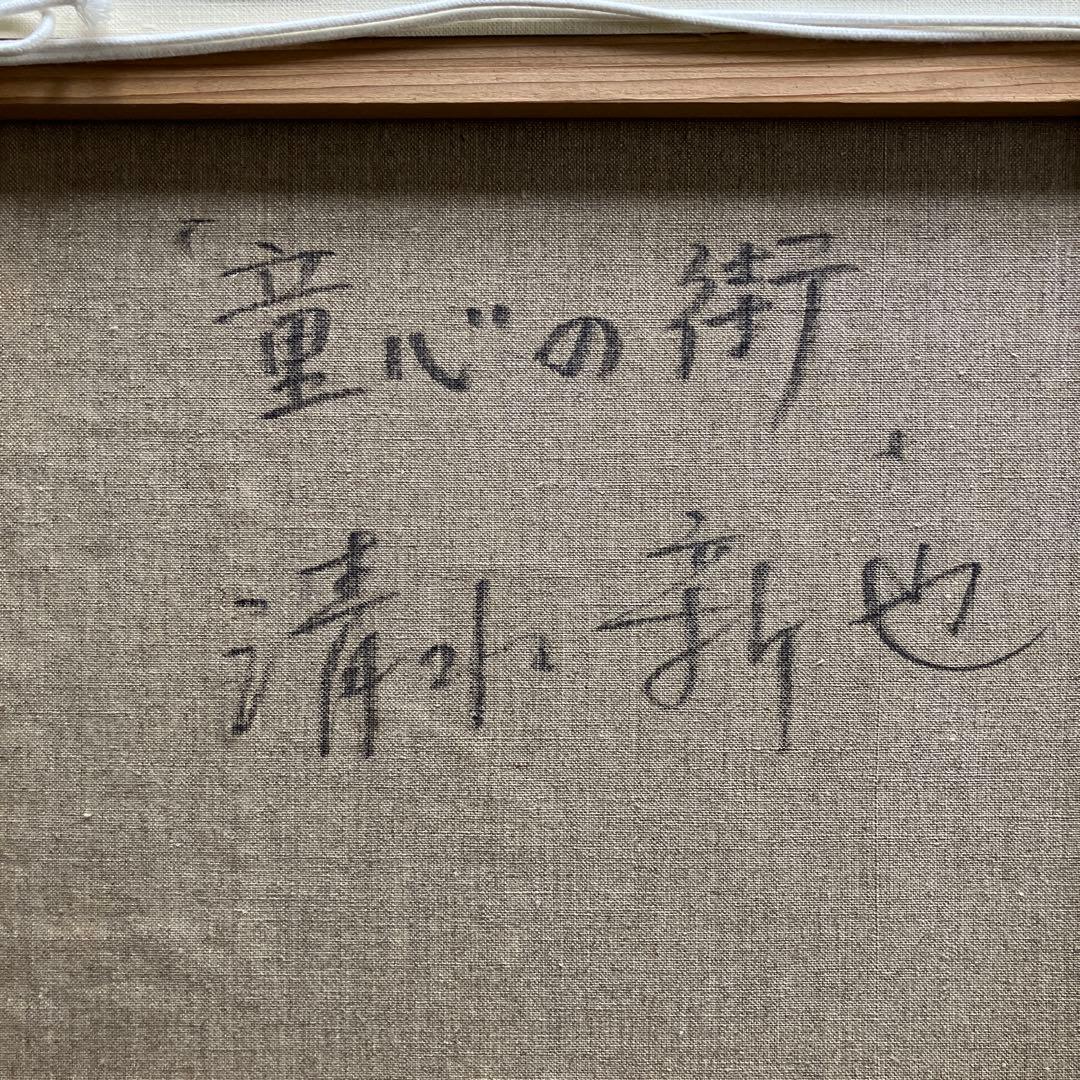 「童心の街」
清水新也